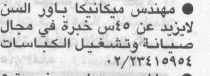 ● مهندس ميكانيكا باور السن
لايزيد عن ٤٥س خبرة في مجال
صيانة وتشغيل الكباسات
٠٢/٢٣٤١٥٩٥٤